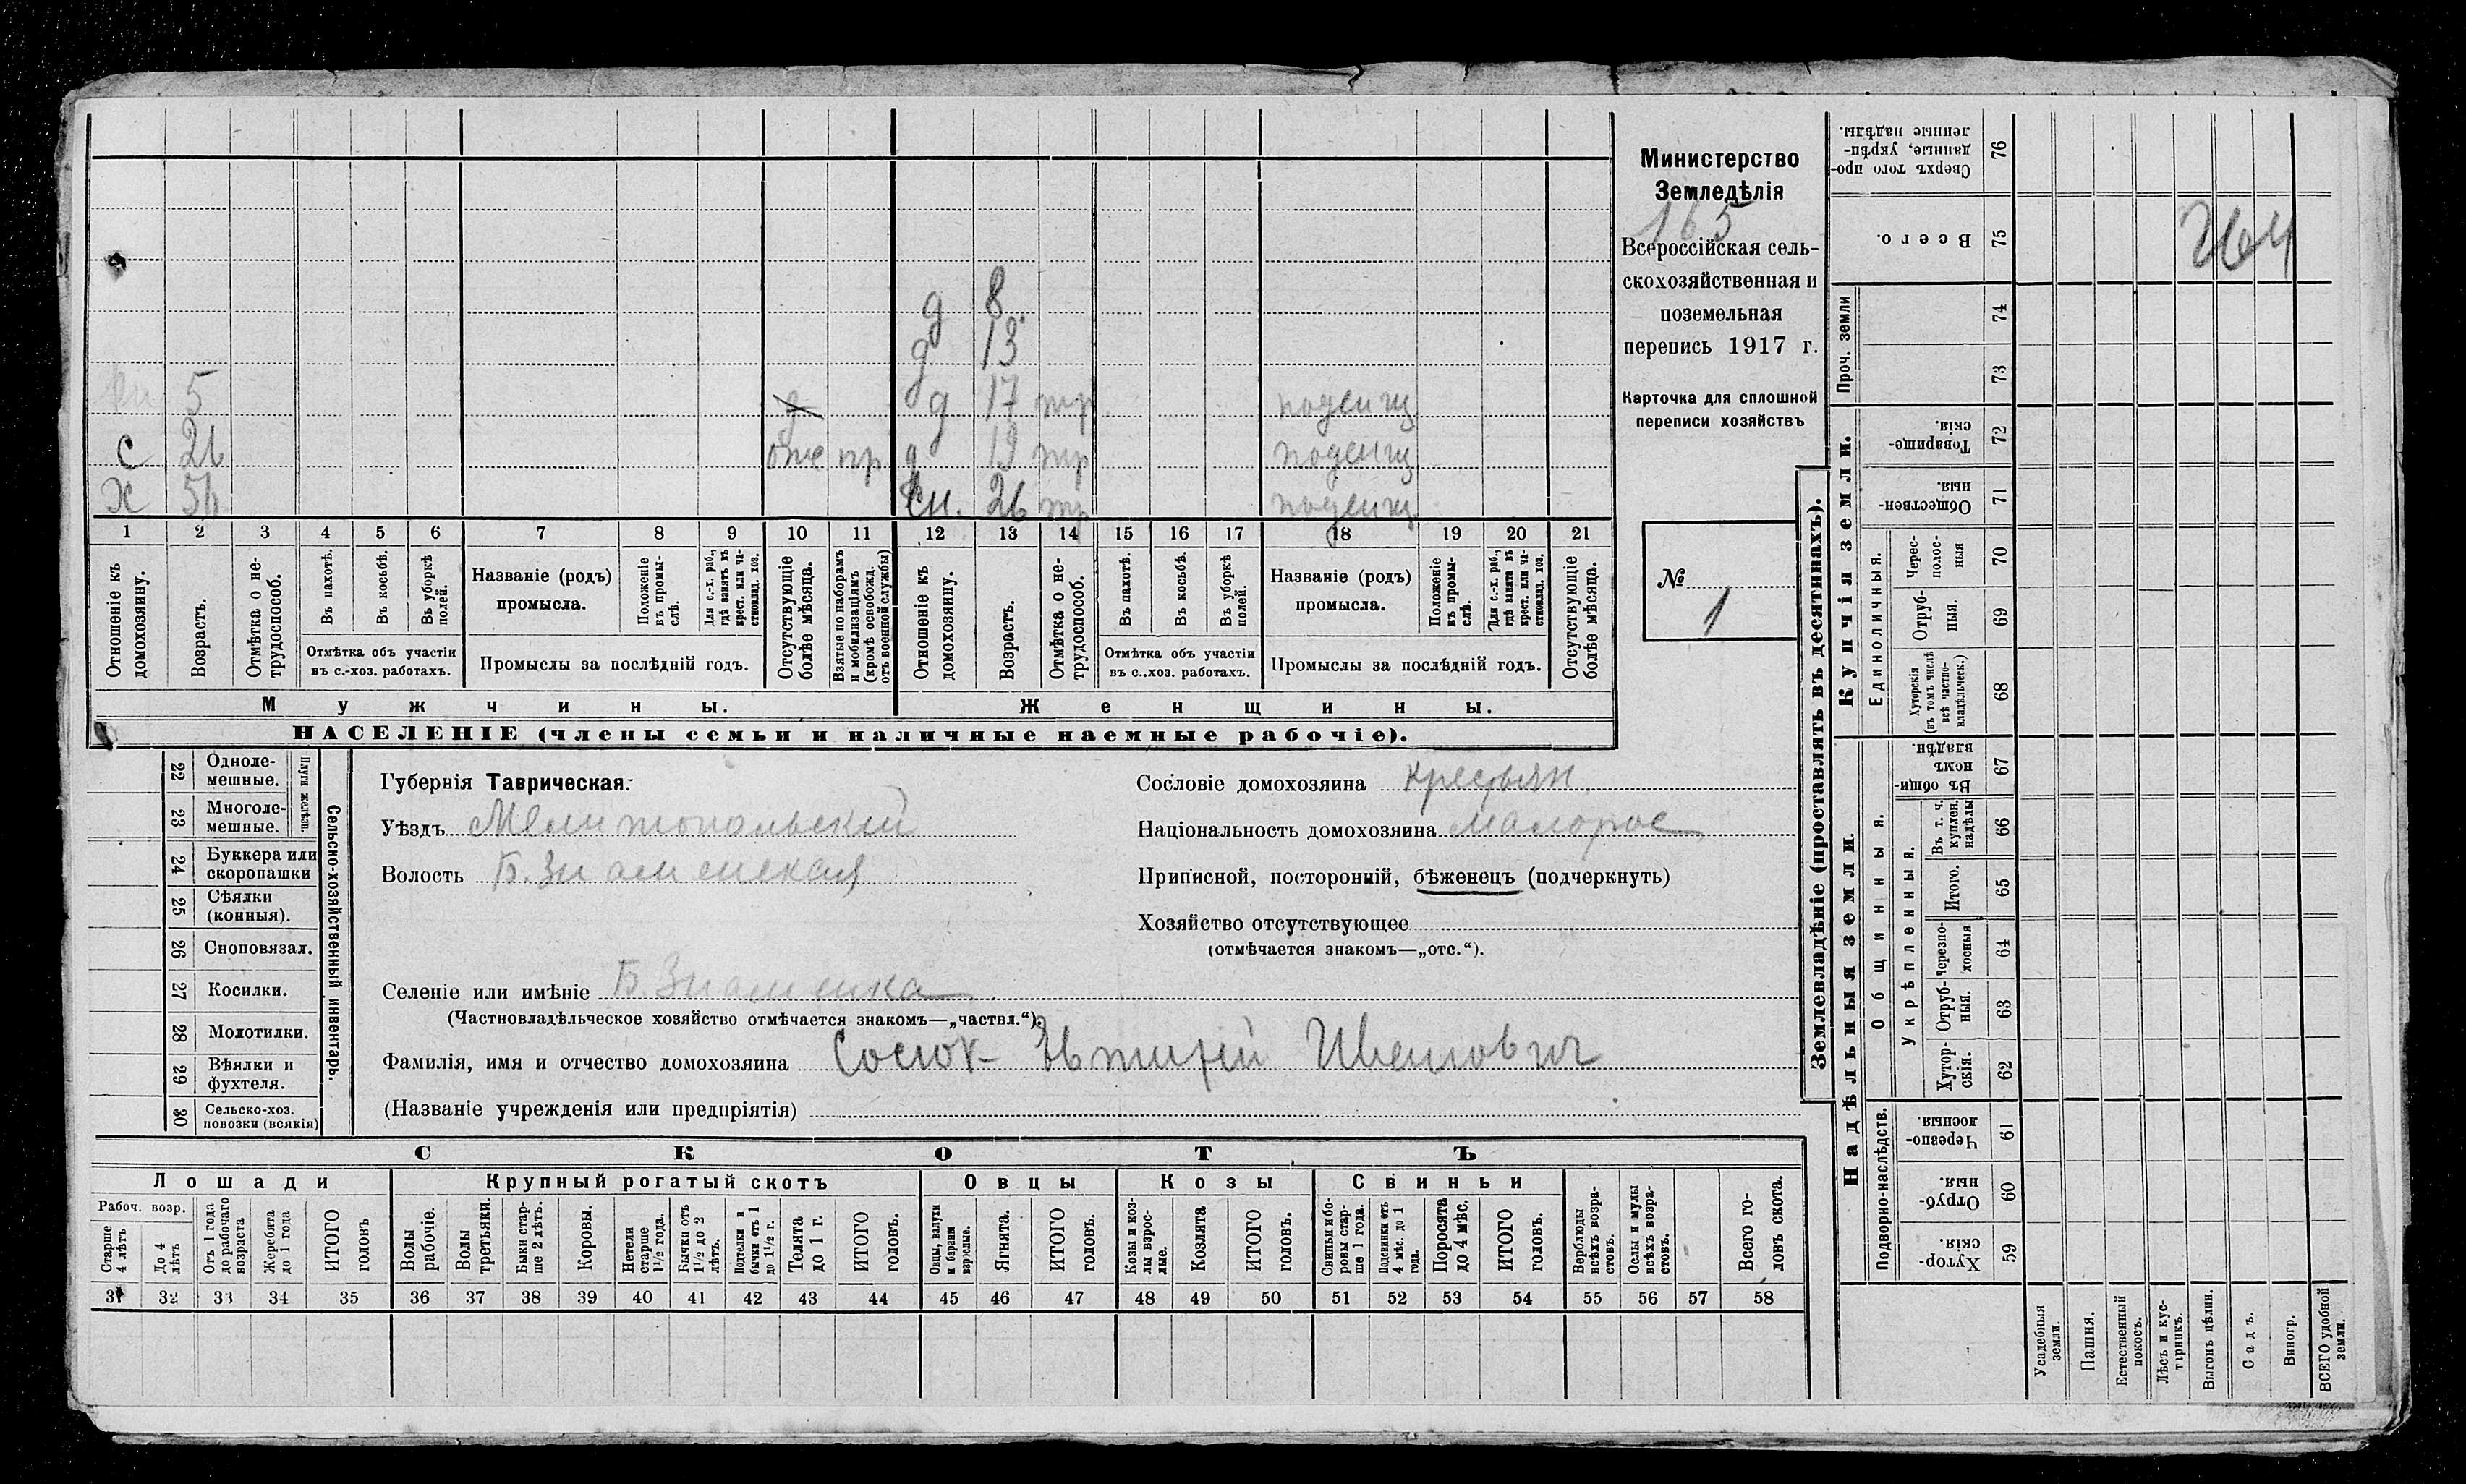 Министерство
Земледѣлія
165
Всероссійская сель-
скохозяйственная и
поземельная
перепись 1917 г.
Карточка для сплошной
переписи хозяйствъ
№
1
264
д 8
д 13
5 д 17 тр. поденщ
с 26 пр д 19 тр поденщ
х сн. 26 тр поденщ
1 2 3 4 5 6 7 8 9 10 11 12 13 14 15 16 17 18 19 20 21
Отношеніе къ домохозяину.
Возрастъ.
Отмѣтка о не-трудоспособ.
Въ пахотѣ.
Въ косьбѣ.
Въ уборкѣ полей.
Отмѣтка объ участіи
въ с.-хоз. работахъ.
Названіе (родъ)
промысла.
Положеніе въ промы-слѣ.
Для с.-х. раб., гдѣ занятъ въ крест. или ча-стновлад. хоз.
Промыслы за послѣдній годъ.
Отсутствующіе болѣе мѣсяца.
Взятые по наборамъ и мобилизаціямъ (кромѣ освобожд. отъ военной службы)
Отношеніе къ домохозяину.
Возрастъ.
Отмѣтка о не-трудоспособ.
Въ пахотѣ.
Въ косьбѣ.
Въ уборкѣ полей.
Отмѣтка объ участіи
въ с..хоз. работахъ.
Названіе (родъ)
промысла.
Положеніе въ промы-слѣ.
Для с.-х. раб., гдѣ занята въ крест. или ча-стновлад. хоз.
Промыслы за послѣдній годъ.
Отсутствующіе болѣе мѣсяца.
Мужчины. Женщины.
НАСЕЛЕНІЕ (члены семьи и наличные наемные рабочіе).
22 Одноле-мешные.
23 Многоле-мешные.
Плуги желѣзн.
24 Буккера или скоропашки
25 Сѣялки (конныя).
26 Сноповязал.
27 Косилки.
28 Молотилки.
29 Вѣялки и фухтеля.
30 Сельско-хоз. повозки (всякія)
Сельско-хозяйственный инвентарь.
Губернія Таврическая.
Уѣздъ Мелитопольский
Волость Б. Знаменская
Сословіе домохозяина крестьян
Національность домохозяина малорос
Приписной, посторонній, бѣженецъ (подчеркнуть)
Хозяйство отсутствующее
(отмѣчается знакомъ—„отс.“).
Селеніе или имѣніе Б. Знаменка
(Частновладѣльческое хозяйство отмѣчается знакомъ—„частвл.“).
Фамилія, имя и отчество домохозяина Сосюк Ивстафій Иванович
(Названіе учрежденія или предпріятія)
СКОТЪ
Лошади Крупный рогатый скотъ Овцы Козы Свиньи
Рабоч. возр.
Старше 4 лѣтъ
До 4 лѣтъ
Отъ 1 года до рабочаго возраста
Жеребята до 1 года
ИТОГО головъ
Волы рабочіе.
Волы третьяки.
Быки стар-ше 2 лѣтъ.
Коровы.
Нетели старше 1½ года.
Бычки отъ 1½ до 2 лѣтъ.
Подтелки и бычки отъ 1 до 1½ г.
Телята до 1 г.
ИТОГО головъ.
Овцы, валухи и бараны взрослые.
Ягнята.
ИТОГО головъ.
Козы и коз-лы взрос-лые.
Козлята
ИТОГО головъ.
Свиньи и бо-ровы стар-ше 1 года.
Подсвинки отъ 4 мѣс. до 1 года.
Поросята до 4 мѣс.
ИТОГО головъ.
Верблюды всѣхъ возра-стовъ.
Ослы и мулы всѣхъ возра-стовъ.
Всего го-ловъ скота.
31 32 33 34 35 36 37 38 39 40 41 42 43 44 45 46 47 48 49 50 51 52 53 54 55 56 57 58
Землевладѣніе (проставлять въ десятинахъ).
Надѣльныя земли.
Купчія земли.
Проч. земли
Подворно-наслѣдств.
Общинныя.
Укрѣпленныя.
Единоличныя.
Хутор-скія. 59
Отруб-ныя. 60
Черезпо-лосныя. 61
Хутор-скія. 62
Отруб-ныя. 63
Черезпо-лосныя 64
Итого. 65
Въ т. ч. куплен. надѣлы 66
Въ общин-номъ владѣн. 67
Хуторскія (въ томъ числѣ всѣ частно-владѣльческ.) 68
Отруб-ныя. 69
Черес-полос-ныя 70
Обществен-ныя. 71
Товарище-скія. 72
73
74
Всего. 75
Сверхъ того про-данные, укрѣп-ленные надѣлы. 76
Усадебныя земли.
Пашня.
Естественный покосъ.
Лѣсъ и кус-тарникъ.
Выгонъ цѣлин.
Садъ.
Виногр.
ВСЕГО удобной земли.